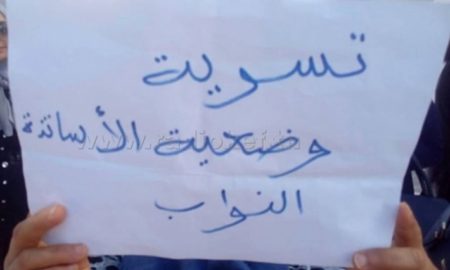 تسوية
وضعية الأساتذة
النواب